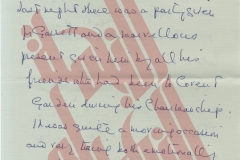 last night there was a party given
to Garrett and a marvellous
present given him by all his
friends who had been to Covent
Garden during his Chairmanship.
It was quite a moving occasion
and very tiring both emotionally